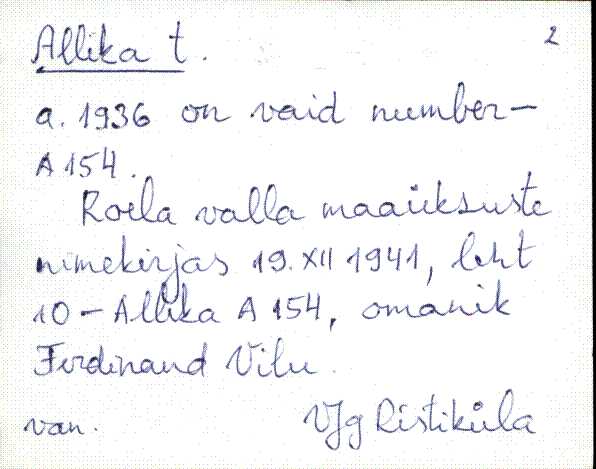 Allika t.
2
a. 1936 on vaid number-
A 154.
Roela valla maaüksuste
nimekirjas 19. XII 1941, leht
10 - Allika A 154, omanik
Ferdinand Vilu.
van. VJg Ristiküla